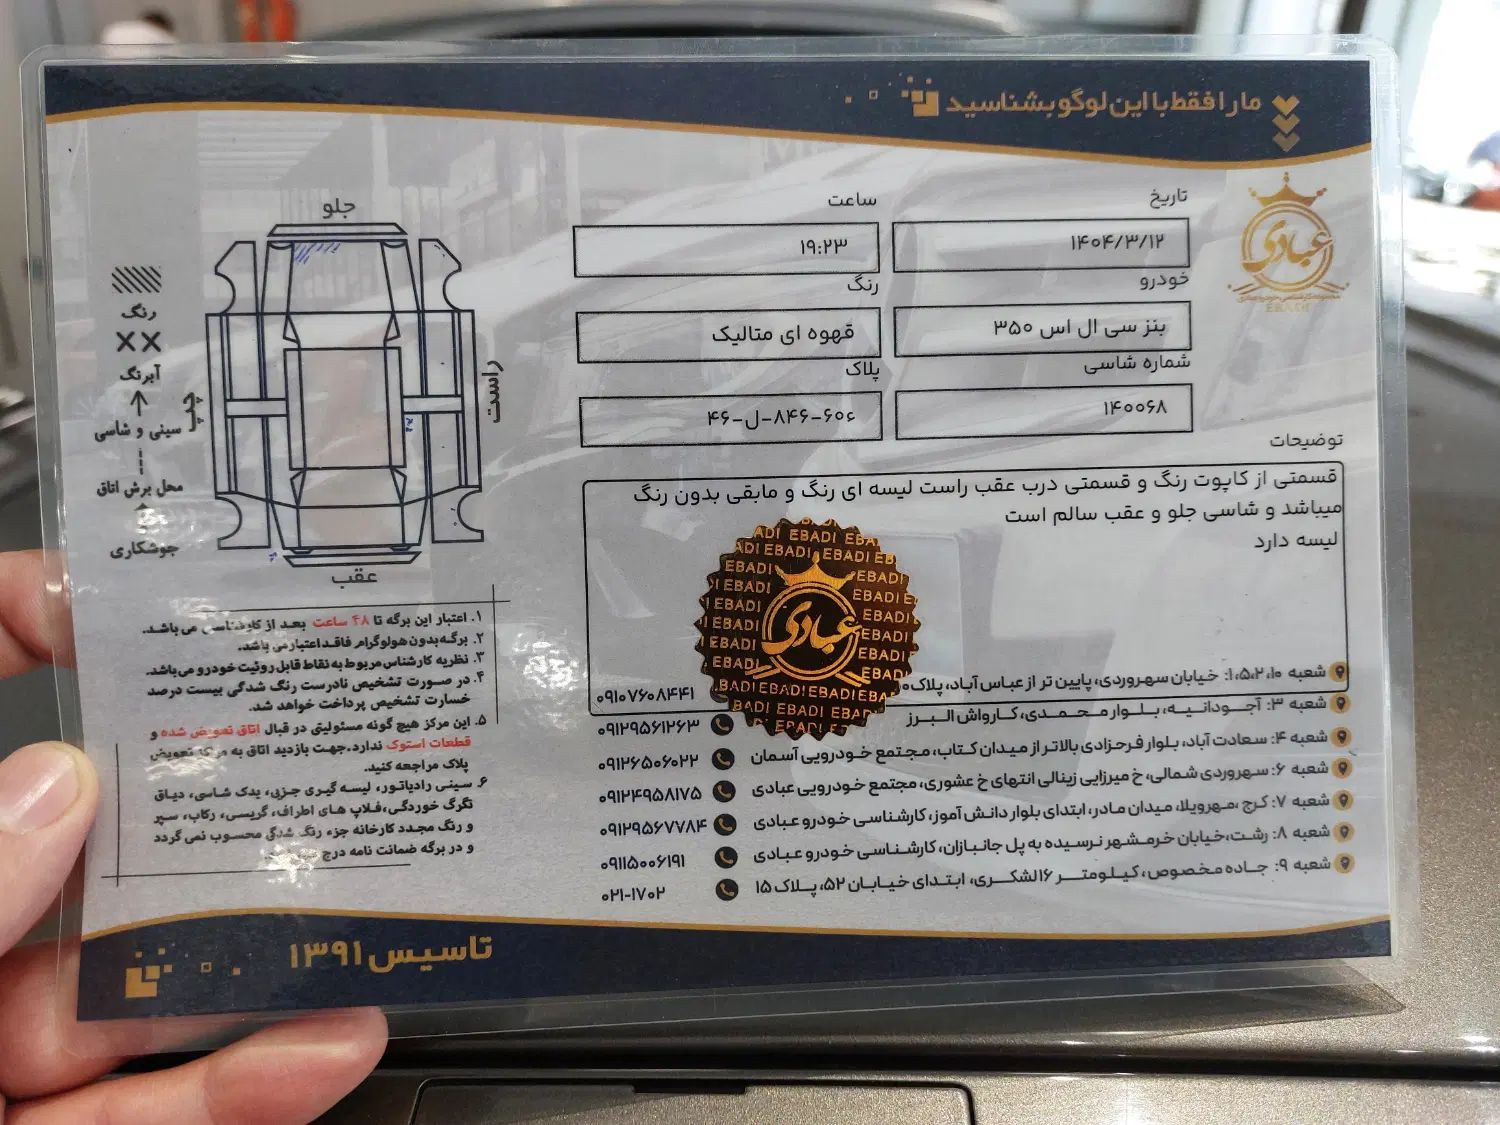 ما را فقط با این لوگو بشناسید
عبادی
EBADI
تاریخ
۱۴۰۴/۳/۱۲
ساعت
۱۹:۲۳
خودرو
بنز سی ال اس ۳۵۰
رنگ
قهوه ای متالیک
شماره شاسی
۱۴۰۰۶۸
پلاک
۴۶-ل-۸۴۶-۶۰ء
توضیحات
قسمتی از کاپوت رنگ و قسمتی درب عقب راست لیسه ای رنگ و مابقی بدون رنگ
میباشد و شاسی جلو و عقب سالم است
لیسه دارد
EBADI
عبادی
شعبه ۱،۵،۲،۱۰: خیابان سهروردی، پایین تر از عباس آباد، پلاک
۰۹۱۰۷۶۰۸۴۴۱
شعبه ۳: آجودانیه، بلوار محمدی، کارواش البرز
۰۹۱۲۹۵۶۱۲۶۳
شعبه ۴: سعادت آباد، بلوار فرحزادی بالاتر از میدان کتاب، مجتمع خودرویی آسمان
۰۹۱۲۶۵۰۶۰۲۲
شعبه ۶: سهروردی شمالی، خ میرزایی زینالی انتهای خ عشوری، مجتمع خودرویی عبادی
۰۹۱۲۴۹۵۸۱۷۵
شعبه ۷: کرج ،مهرویلا، میدان مادر، ابتدای بلوار دانش آموز، کارشناسی خودرو عبادی
۰۹۱۲۹۵۶۷۷۸۴
شعبه ۸: رشت،خیابان خرمشهر نرسیده به پل جانبازان، کارشناسی خودرو عبادی
۰۹۱۱۵۰۰۶۱۹۱
شعبه ۹: جاده مخصوص، کیلومتر ۱۶ لشکری، ابتدای خیابان ۵۲، پلاک ۱۵
۰۲۱-۱۷۰۲
جلو
راست
چپ
عقب
رنگ
XX
آبرنگ
سینی و شاسی
محل برش اتاق
جوشکاری
۱. اعتبار این برگه تا ۴۸ ساعت بعد از کارشناسی می باشد.
۲. برگه بدون هولوگرام فاقد اعتبار می باشد.
۳. نظریه کارشناس مربوط به نقاط قابل روئیت خودرو می باشد.
۴. در صورت تشخیص نادرست رنگ شدگی بیست درصد
خسارت تشخیص پرداخت خواهد شد.
۵. این مرکز هیچ گونه مسئولیتی در قبال اتاق تعویض شده و
قطعات استوک ندارد.جهت بازدید اتاق به مرکز تعویض
پلاک مراجعه کنید.
۶. سینی رادیاتور، لیسه گیری جزیی، یدک شاسی، دیاق
تگرگ خوردگی،فلاپ های اطراف، گریسی، رکاب، سپر
و رنگ مجدد کارخانه جزء رنگ شدگی محسوب نمی گردد
و در برگه ضمانت نامه درج
تاسیس ۱۳۹۱